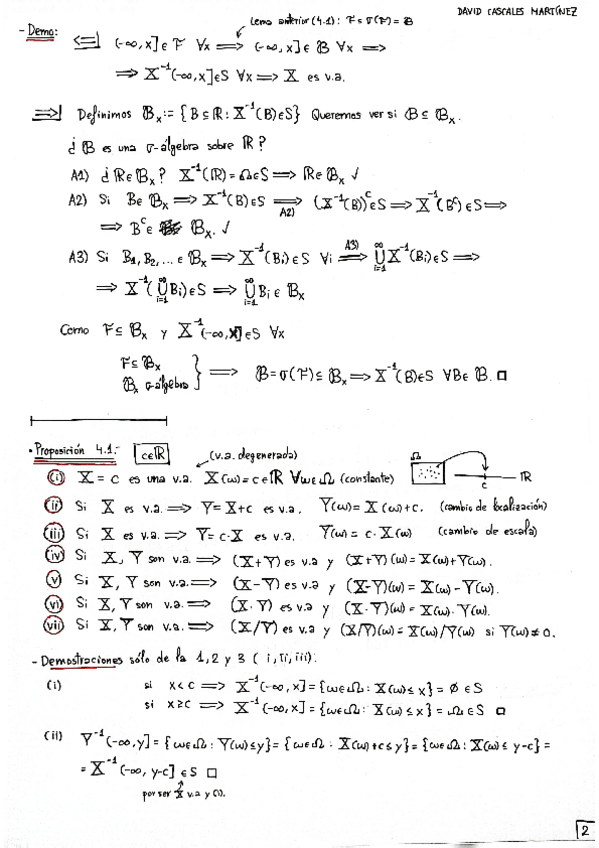 DAVID CASCALES MARTÍNEZ
Lema anterior (4.1): F ≤ σ(F) = B
- Demo: <=| (-∞, x] ∈ F ∀x => (-∞, x] ∈ B ∀x =>
=> X⁻¹(-∞, x] ∈ S ∀x => X es v.a.
=>| Definimos Bₓ := { B ⊆ ℝ : X⁻¹(B) ∈ S } Queremos ver si B ⊆ Bₓ.
¿ B es una σ-álgebra sobre ℝ ?
A1) ¿ ℝ ∈ Bₓ ? X⁻¹(ℝ) = Ω ∈ S => ℝ ∈ Bₓ ✓
A2) Si B ∈ Bₓ => X⁻¹(B) ∈ S => A2) (X⁻¹(B))ᶜ ∈ S => X⁻¹(Bᶜ) ∈ S =>
=> Bᶜ ∈ Bₓ. ✓
A3) Si B₁, B₂, ... ∈ Bₓ => X⁻¹(Bᵢ) ∈ S ∀i => A3) ∞ ∪ i=1 X⁻¹(Bᵢ) ∈ S =>
=> X⁻¹( ∞ ∪ i=1 Bᵢ) ∈ S => ∞ ∪ i=1 Bᵢ ∈ Bₓ
Como F ⊆ Bₓ y X⁻¹(-∞, x] ∈ S ∀x
F ⊆ Bₓ
Bₓ σ-álgebra } => B = σ(F) ⊆ Bₓ => X⁻¹(B) ∈ S ∀B ∈ B. □
• Proposición 4.1.- c ∈ ℝ (v.a. degenerada)
(i) X = c es una v.a. X(ω) = c ∈ ℝ ∀ω ∈ Ω (constante) Ω c ℝ
(ii) Si X es v.a. => Y = X+c es v.a. Y(ω) = X(ω)+c. (cambio de localización)
(iii) Si X es v.a. => Y = c·X es v.a. Y(ω) = c·X(ω) (cambio de escala)
(iv) Si X, Y son v.a. => (X+Y) es v.a y (X+Y)(ω) = X(ω)+Y(ω).
(v) Si X, Y son v.a. => (X-Y) es v.a y (X-Y)(ω) = X(ω) - Y(ω).
(vi) Si X, Y son v.a. => (X·Y) es v.a y (X·Y)(ω) = X(ω)·Y(ω).
(vii) Si X, Y son v.a. => (X/Y) es v.a y (X/Y)(ω) = X(ω)/Y(ω) si Y(ω) ≠ 0.
- Demostraciones sólo de la 1, 2 y 3 ( i, ii, iii):
(i) si x < c => X⁻¹(-∞, x] = {ω ∈ Ω : X(ω) ≤ x} = ∅ ∈ S
si x ≥ c => X⁻¹(-∞, x] = {ω ∈ Ω : X(ω) ≤ x} = Ω ∈ S □
(ii) Y⁻¹(-∞, y] = {ω ∈ Ω : Y(ω) ≤ y} = {ω ∈ Ω : X(ω)+c ≤ y} = {ω ∈ Ω : X(ω) ≤ y-c} =
= X⁻¹(-∞, y-c] ∈ S □
por ser X v.a y (i).
2